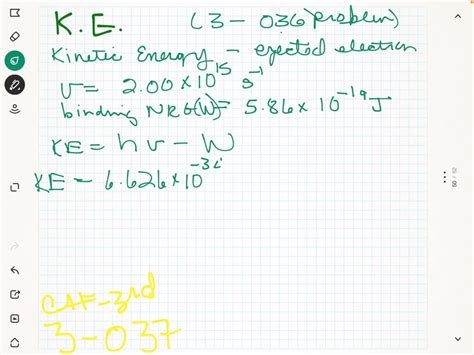 K.E. (3-036 problem)
Kinetic Energy - ejected electron
ν = 2.00 × 10¹⁵ s⁻¹
binding NRG(W) = 5.86 × 10⁻¹⁹ J
KE = hν - W
KE = 6.626 × 10⁻³⁴
CAF-3rd
3-037
50 / 52